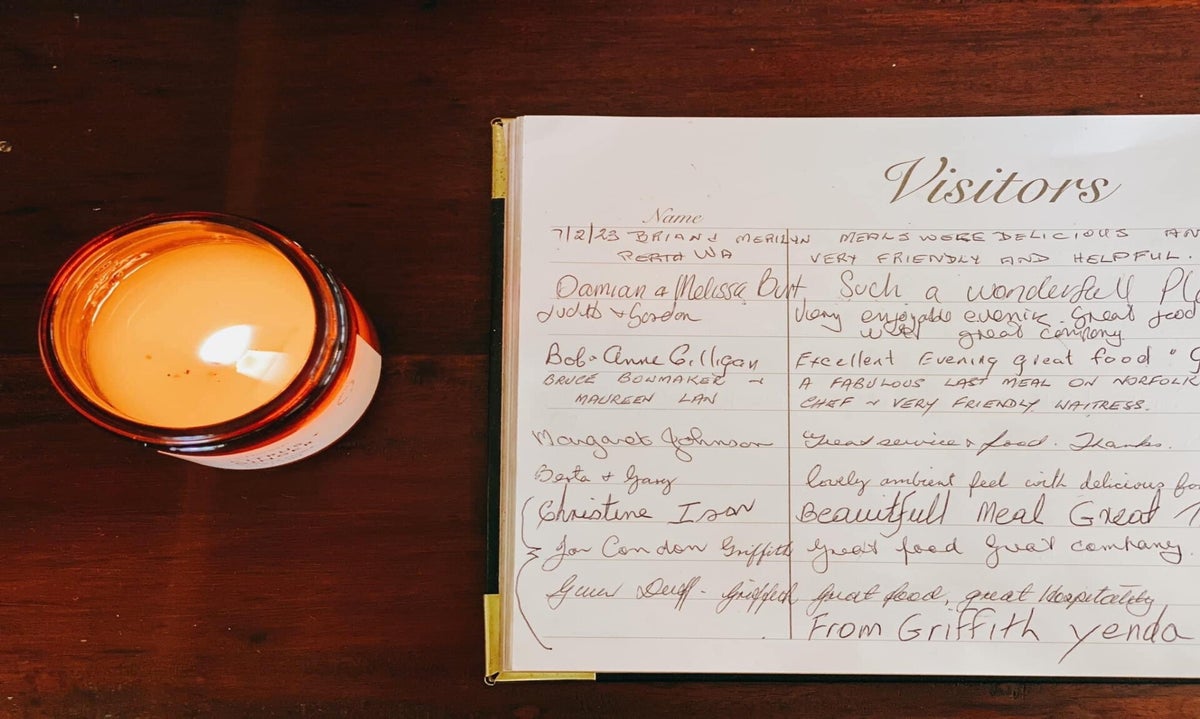 Visitors
Name
7/2/23 BRIAN & MERILYN MEALS WERE DELICIOUS AN
PERTH WA VERY FRIENDLY AND HELPFUL.
Damian & Melissa Burt, Such a wonderfull Pl
Judith + Gordon Very enjoyable evening. Great food
with great company
Bob & Anne Gilligan Excellent Evening great food "
BRUCE BOWMAKER + A FABULOUS LAST MEAL ON NORFOLK
MAUREEN LAN CHEF + VERY FRIENDLY WAITRESS.
Margaret Johnson Great service & food. Thanks.
Berta + Gary lovely ambient feel with delicious fo
Christine Ison Beauitfull Meal Great
Condon Griffith Great food Great company.
Duff - Griffith Great food, great Hospitality
From Griffith yenda